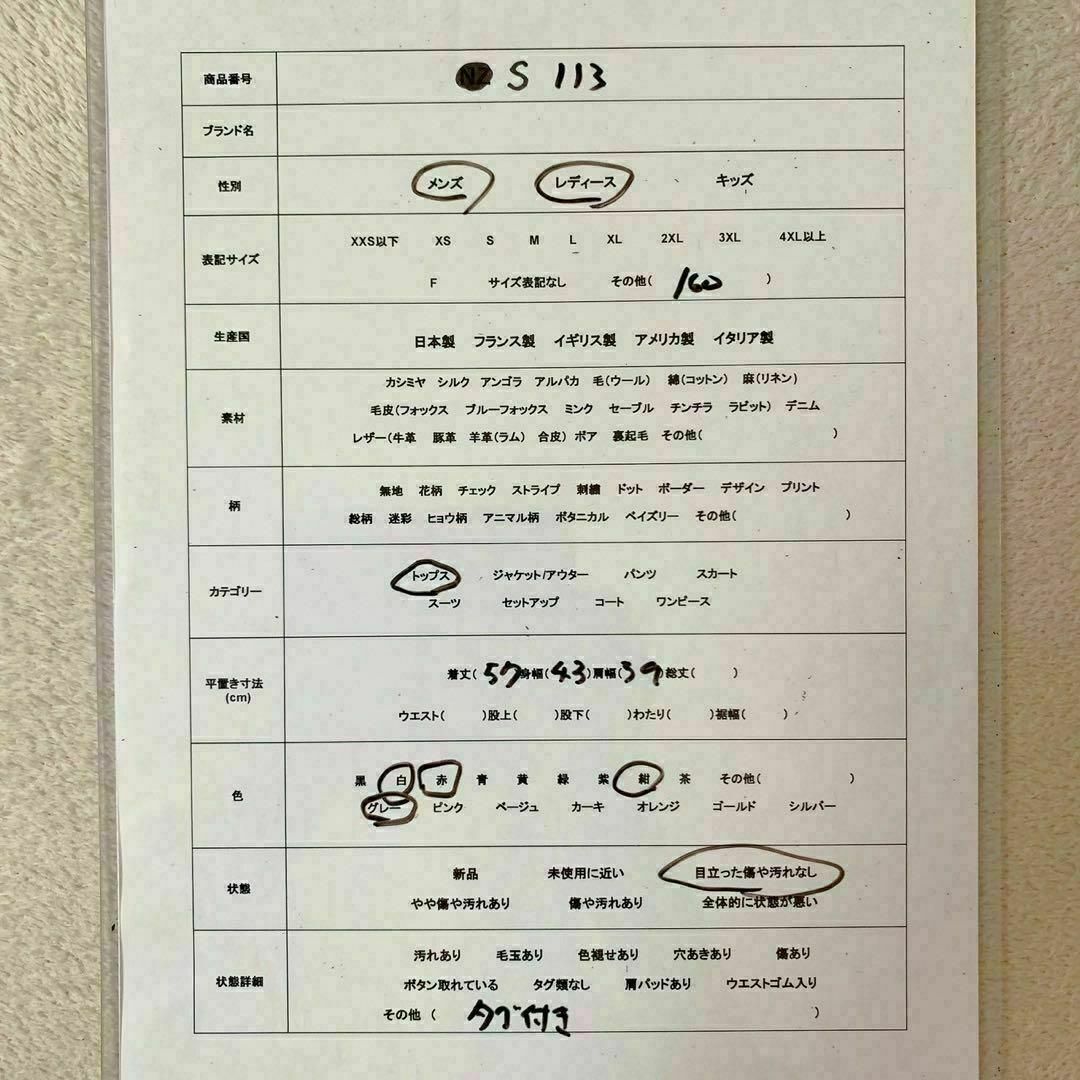 商品番号 NZ S 113
ブランド名
性別 メンズ レディース キッズ
表記サイズ
XXS以下 XS S M L XL 2XL 3XL 4XL以上
F サイズ表記なし その他( 160 )
生産国 日本製 フランス製 イギリス製 アメリカ製 イタリア製
カシミヤ シルク アンゴラ アルパカ 毛(ウール) 綿(コットン) 麻(リネン)
素材 毛皮(フォックス ブルーフォックス ミンク セーブル チンチラ ラビット) デニム
レザー(牛革 豚革 羊革(ラム) 合皮) ボア 裏起毛 その他( )
柄
無地 花柄 チェック ストライプ 刺繍 ドット ボーダー デザイン プリント
総柄 迷彩 ヒョウ柄 アニマル柄 ボタニカル ペイズリー その他( )
カテゴリー
トップス ジャケット/アウター パンツ スカート
スーツ セットアップ コート ワンピース
平置き寸法
(cm)
着丈( 57 身幅( 43 )肩幅( 39 )総丈( )
ウエスト( )股上( )股下( )わたり( )裾幅( )
色
黒 白 赤 青 黄 緑 紫 紺 茶 その他( )
グレー ピンク ベージュ カーキ オレンジ ゴールド シルバー
状態
新品 未使用に近い 目立った傷や汚れなし
やや傷や汚れあり 傷や汚れあり 全体的に状態が悪い
汚れあり 毛玉あり 色褪せあり 穴あきあり 傷あり
状態詳細 ボタン取れている タグ類なし 肩パッドあり ウエストゴム入り
その他 ( タグ付き )